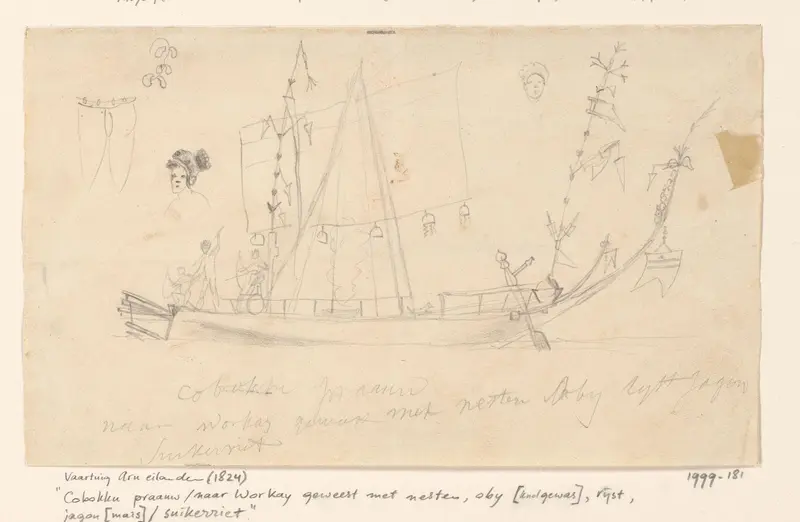 Cobokku praauw
naar Workay geweest met nesten Oby Ryst Jagon
Suikerriet
Vaartuig Aru eilanden (1824)
1999-181
"Cobokku praauw / naar Workay geweest met nesten, oby [knolgewas], rijst,
jagon [mais] / suikerriet."